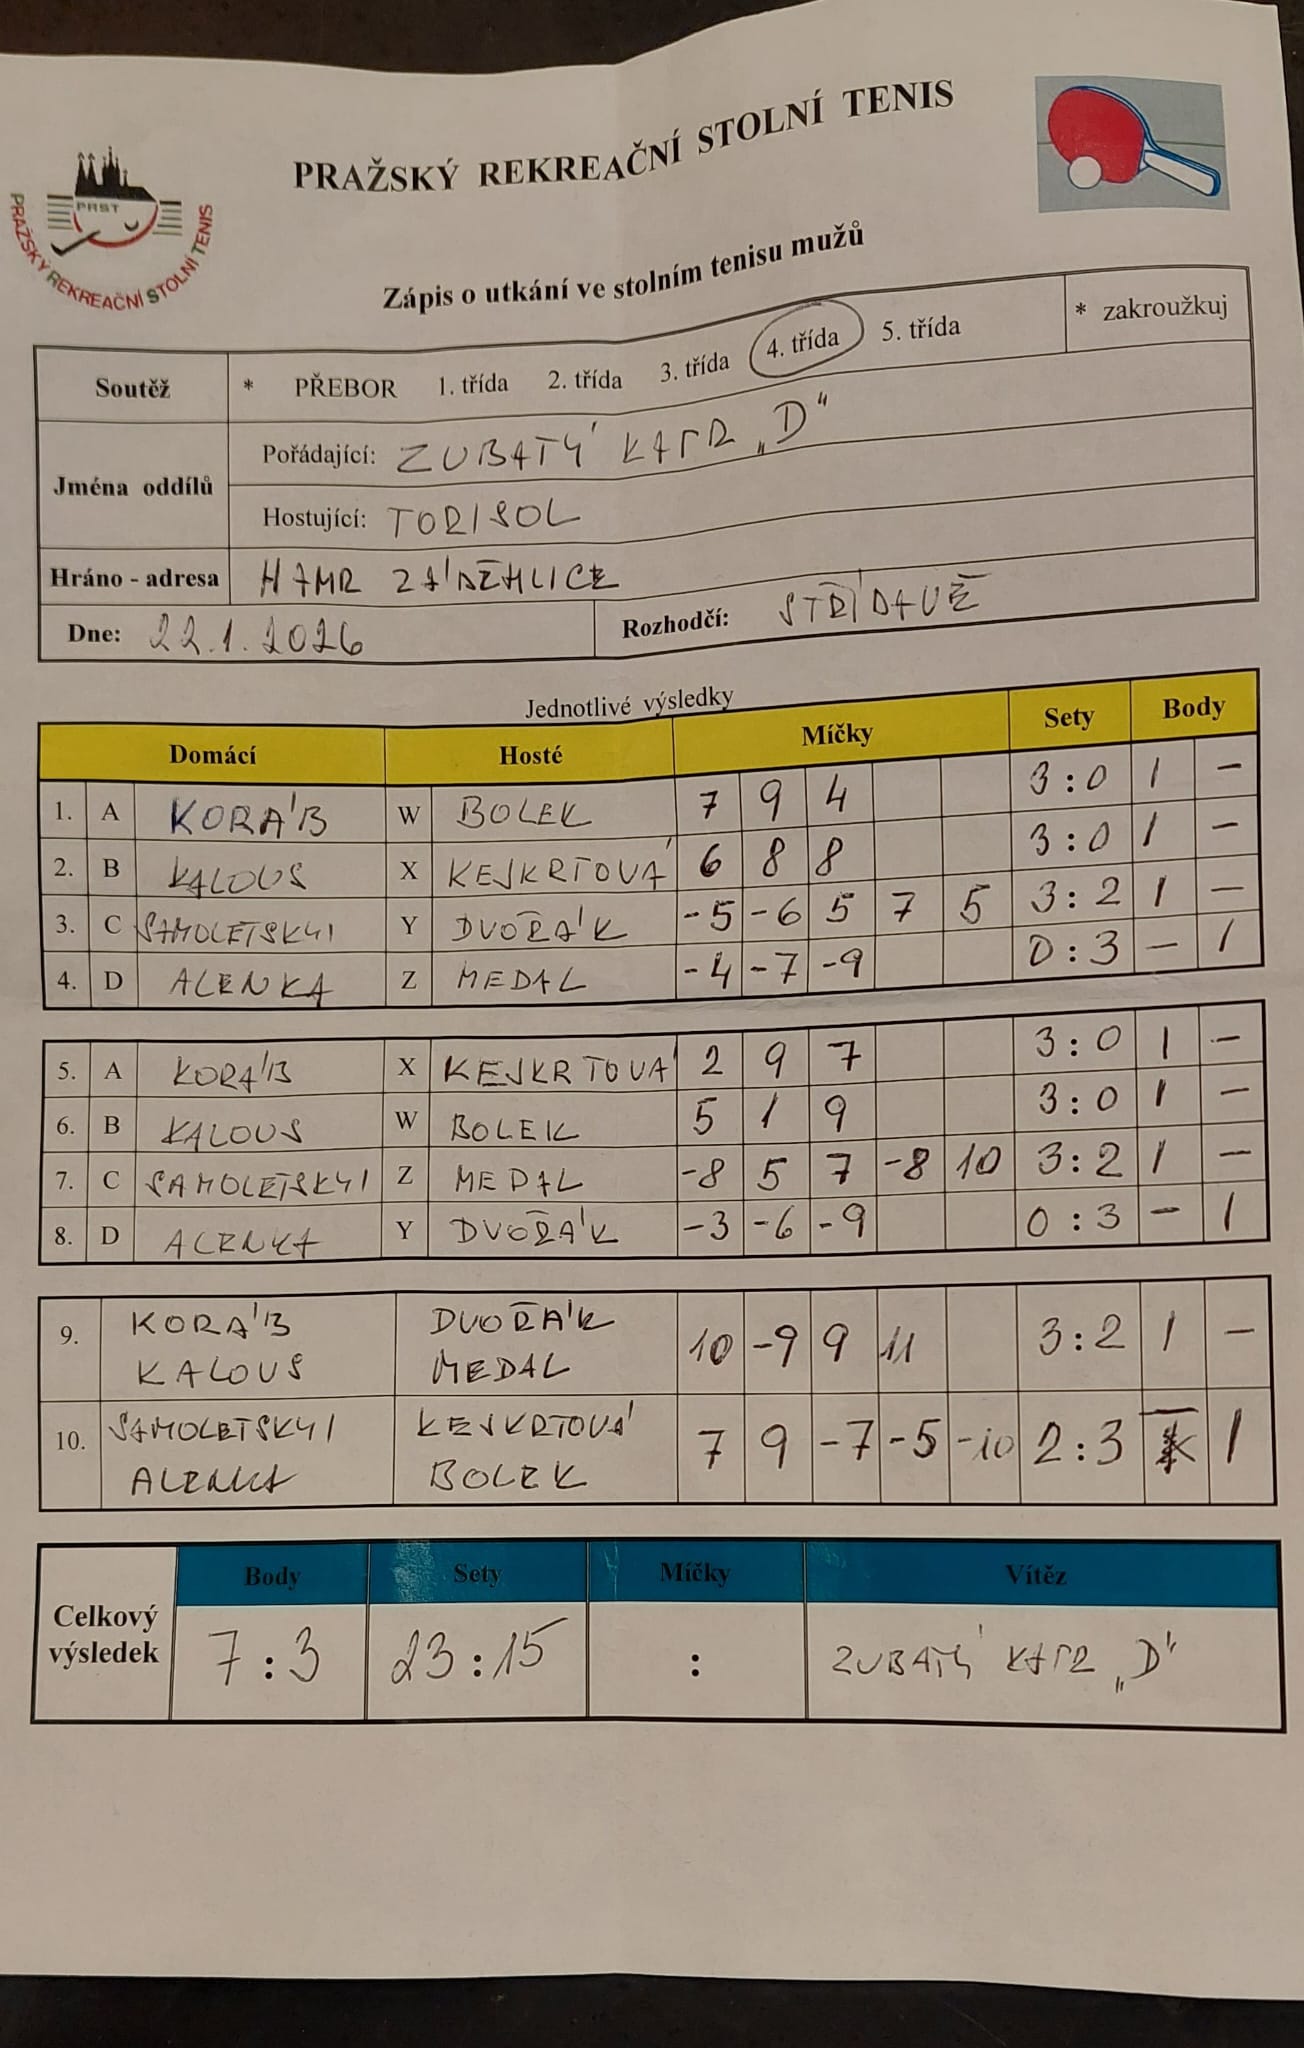 PRAŽSKÝ REKREAČNÍ STOLNÍ TENIS
PRST
PRAŽSKÝ REKREAČNÍ STOLNÍ TENIS
Zápis o utkání ve stolním tenisu mužů
Soutěž * PŘEBOR 1. třída 2. třída 3. třída 4. třída 5. třída * zakroužkuj
Jména oddílů
Pořádající: ZUBATÝ KAPR „D"
Hostující: TORISOL
Hráno - adresa HAMR ZÁBĚHLICE
Dne: 22.1.2026 Rozhodčí: STŘÍDAVĚ
Jednotlivé výsledky
Domácí Hosté Míčky Sety Body
1. A KORÁB W BOLEK 7 9 4 3:0 1 -
2. B KALOUS X KEJKRTOVÁ 6 8 8 3:0 1 -
3. C SAMOLETSKÝ Y DVOŘÁK -5 -6 5 7 5 3:2 1 -
4. D ALENKA Z MEDAL -4 -7 -9 0:3 - 1
5. A KORÁB X KEJKRTOVÁ 2 9 7 3:0 1 -
6. B KALOUS W BOLEK 5 1 9 3:0 1 -
7. C SAMOLETSKÝ Z MEDAL -8 5 7 -8 10 3:2 1 -
8. D ALENKA Y DVOŘÁK -3 -6 -9 0:3 - 1
9. KORÁB DVOŘÁK 10 -9 9 11 3:2 1 -
KALOUS MEDAL
10. SAMOLETSKÝ KEJKRTOVÁ 7 9 -7 -5 -10 2:3 - 1
ALENKA BOLEK
Body Sety Míčky Vítěz
Celkový výsledek 7:3 23:15 : ZUBATÝ KAPR „D"